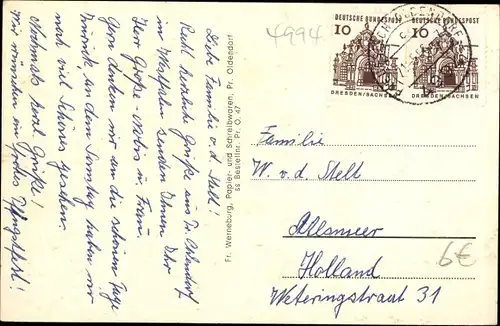 Liebe Familie v. d. Stelt!
Recht herzliche Grüße aus Pr. Oldendorf
in Westfalen senden Ihnen Ihr
Herr Große- u. Frau.
Gern denken wir an die schönen Tage
zurück, an dem Samstag haben wir
noch viel Schönes gesehen.
Nochmals herzl. Grüße!
Wir wünschen ein frohes Pfingstfest!
Fr. Werneburg, Papier- und Schreibwaren, Pr. Oldendorf
ss Bestellnr. Pr. O. 47
4994
DEUTSCHE BUNDESPOST
10
DRESDEN/SACHSEN
DEUTSCHE BUNDESPOST
10
DRESDEN/SACHSEN
Familie
W. v. d. Stelt
Allsmeer
Holland
Weteringstraat 31
6€